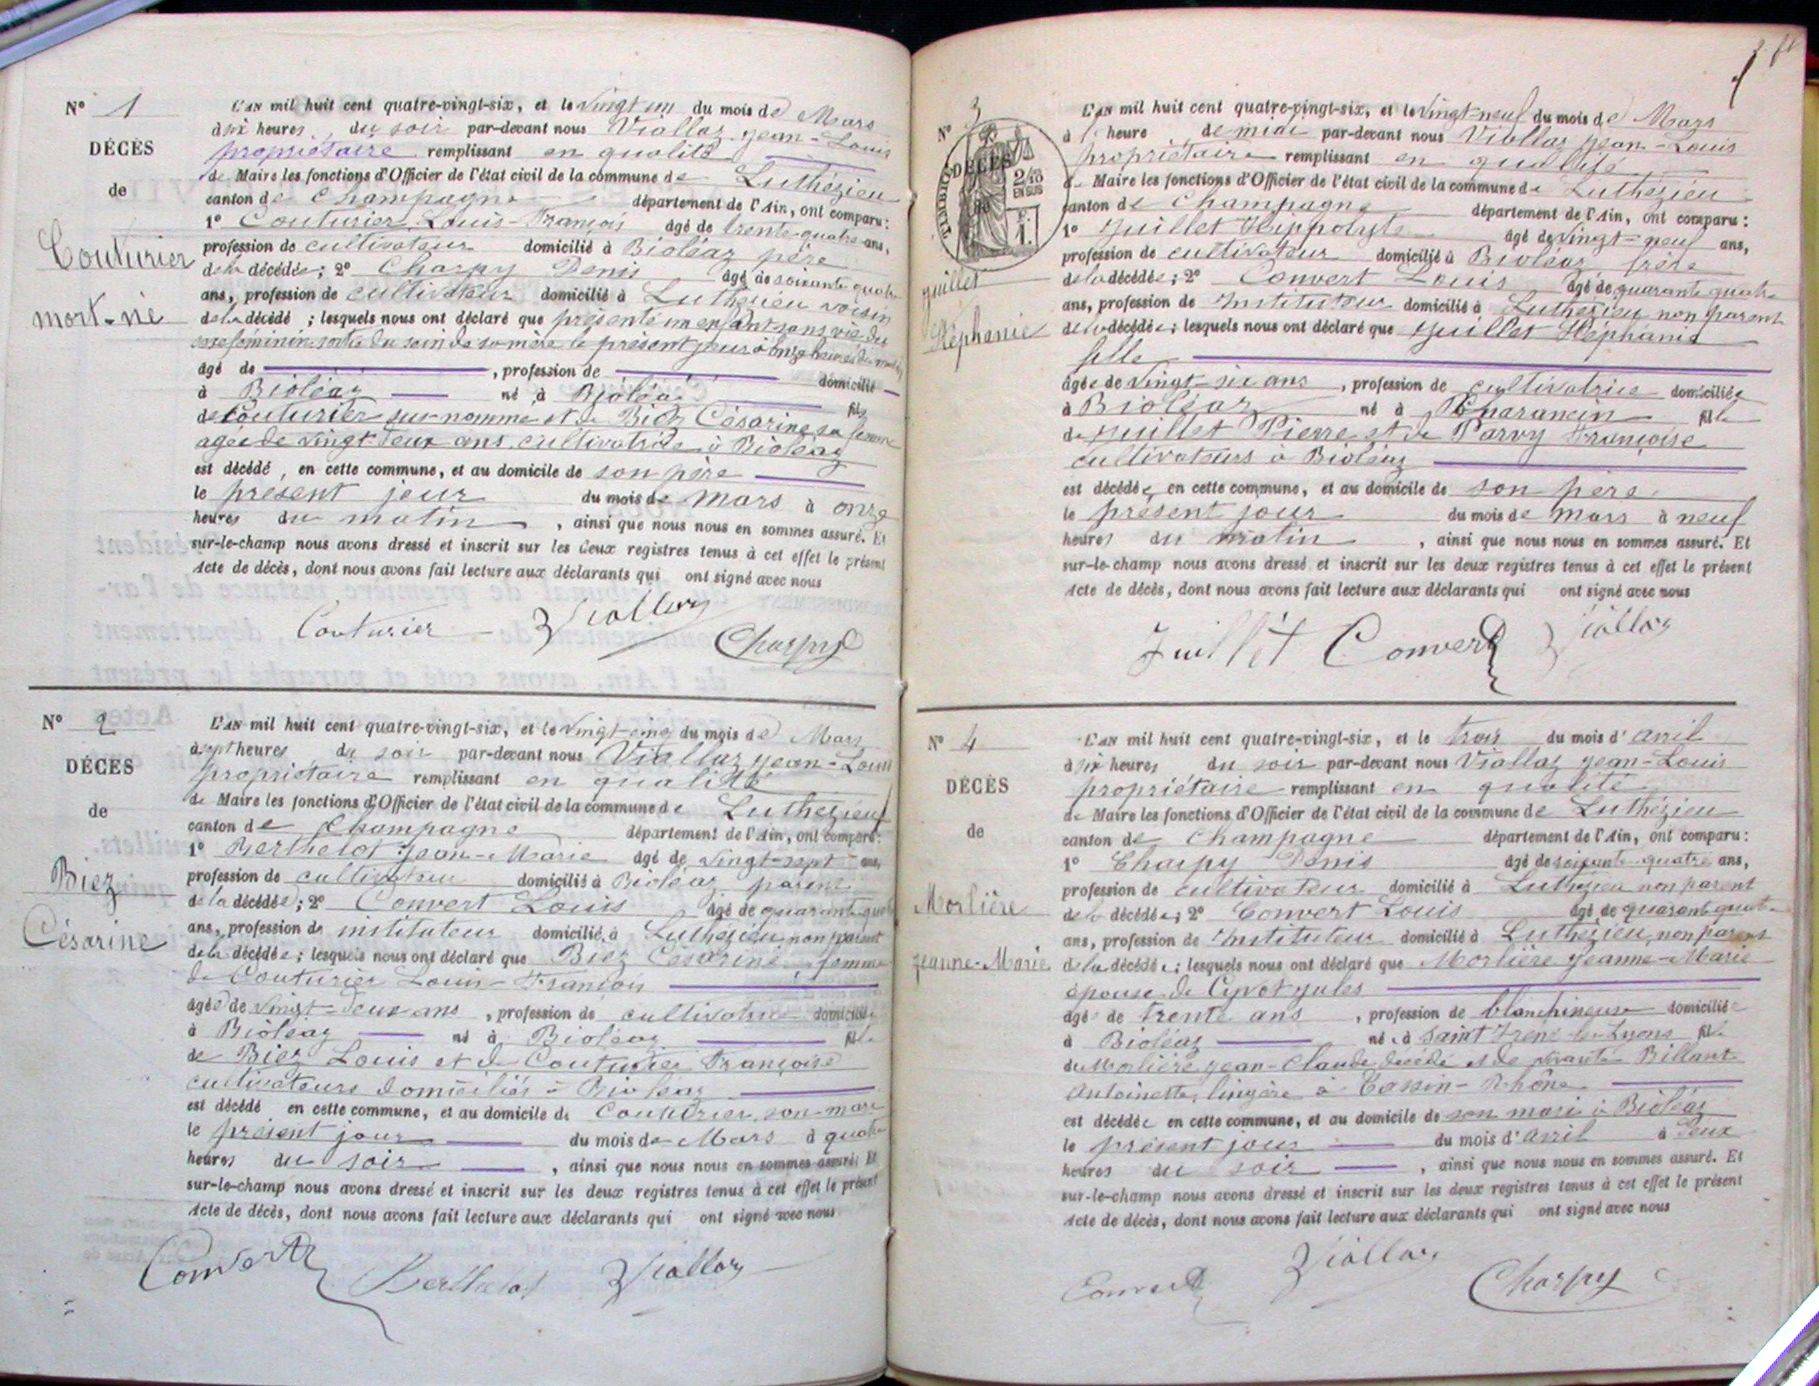 N° 1
DÉCÈS
de
Couturier
mort-né
L'AN mil huit cent quatre-vingt-six, et le vingt un du mois de Mars
à six heures du soir par-devant nous Viallaz Jean-Louis
propriétaire remplissant en qualité
de Maire les fonctions d'Officier de l'état civil de la commune de Luthézieu
canton de Champagne département de l'Ain, ont comparu:
1° Couturier Louis-François âgé de trente-quatre ans,
profession de cultivateur domicilié à Bioléaz père
de la décédée; 2° Charpy Denis âgé de soixante quatre
ans, profession de cultivateur domicilié à Luthézieu voisin
de la décédé ; lesquels nous ont déclaré que présenté un enfant sans vie du
sexe féminin sortie du sein de sa mère le présent jour à onze heures du matin
âgé de , profession de domicilié
à Bioléaz né à Bioléaz fils
de Couturier sus-nommé et de Biez Césarine sa femme
agée de vingt deux ans cultivatrice à Bioléaz
est décédé , en cette commune, et au domicile de son père
le présent jour du mois de mars à onze
heures du matin , ainsi que nous nous en sommes assuré. Et
sur-le-champ nous avons dressé et inscrit sur les deux registres tenus à cet effet le présent
Acte de décès, dont nous avons fait lecture aux déclarants qui ont signé avec nous
Couturier Viallaz
Charpy
N° 2
DÉCÈS
de
Biez
Césarine
L'AN mil huit cent quatre-vingt-six, et le vingt-cinq du mois de Mars
à sept heures du soir par-devant nous Viallaz Jean-Louis
propriétaire remplissant en qualité
de Maire les fonctions d'Officier de l'état civil de la commune de Luthézieu
canton de Champagne département de l'Ain, ont comparu:
1° Berthelot Jean-Marie âgé de vingt-sept ans,
profession de cultivateur domicilié à Bioléaz parent
de la décédée; 2° Convert Louis âgé de quarante quatre
ans, profession de instituteur domicilié à Luthézieu, non parent
de la décédée; lesquels nous ont déclaré que Biez Césarine, femme
de Couturier Louis-François
âgée de vingt-deux ans , profession de cultivatrice domiciliée
à Bioléaz né à Bioléaz fille
de Biez Louis et de Couturier Françoise
cultivateurs domiciliés à Bioléaz
est décédé en cette commune, et au domicile de Couturier, son mari
le présent jour du mois de Mars à quatre
heures du soir , ainsi que nous nous en sommes assuré. Et
sur-le-champ nous avons dressé et inscrit sur les deux registres tenus à cet effet le présent
Acte de décès, dont nous avons fait lecture aux déclarants qui ont signé avec nous
Convert Berthelot Viallaz
N° 3
DÉCÈS
Juillet
Stéphanie
L'AN mil huit cent quatre-vingt-six, et le vingt-neuf du mois de Mars
à 1 heure de midi par-devant nous Viallaz Jean-Louis
propriétaire remplissant en qualité
de Maire les fonctions d'Officier de l'état civil de la commune de Luthézieu
canton de Champagne département de l'Ain, ont comparu:
1° Juillet Hippolyte âgé de vingt-neuf ans,
profession de cultivateur domicilié à Bioléaz frère
de la décédée; 2° Convert Louis âgé de quarante quatre
ans, profession de Instituteur domicilié à Luthézieu non parent
de la décédée; lesquels nous ont déclaré que Juillet Stéphanie
fille
âgée de vingt-six ans , profession de cultivatrice domiciliée
à Bioléaz né à Charancin fille
de Juillet Pierre et de Parvy Françoise
cultivateurs à Bioléaz
est décédée, en cette commune, et au domicile de son père
le présent jour du mois de mars à neuf
heures du matin , ainsi que nous nous en sommes assuré. Et
sur-le-champ nous avons dressé et inscrit sur les deux registres tenus à cet effet le présent
Acte de décès, dont nous avons fait lecture aux déclarants qui ont signé avec nous
Juillet Convert Viallaz
N° 4
DÉCÈS
de
Morlière
Jeanne-Marie
L'AN mil huit cent quatre-vingt-six, et le trois du mois d'avril
à six heures du soir par-devant nous Viallaz Jean-Louis
propriétaire remplissant en qualité
de Maire les fonctions d'Officier de l'état civil de la commune de Luthézieu
canton de Champagne département de l'Ain, ont comparu:
1° Charpy Denis âgé de soixante-quatre ans,
profession de cultivateur domicilié à Luthézieu non parent
de la décédée; 2° Convert Louis âgé de quarante quatre
ans, profession de Instituteur domicilié à Luthézieu, non parent
de la décédée; lesquels nous ont déclaré que Morlière Jeanne-Marie
épouse de Cyvot Jules
âgé de trente ans , profession de blanchisseuse domiciliée
à Bioléaz née à Saint Irené le Lyons fille
de Morlière Jean-Claude, décédé et de vivante Billant
Antoinette, lingère à Tassin-Rhône
est décédée en cette commune, et au domicile de son mari à Bioléaz
le présent jour du mois d'avril à deux
heures du soir , ainsi que nous nous en sommes assuré. Et
sur-le-champ nous avons dressé et inscrit sur les deux registres tenus à cet effet le présent
Acte de décès, dont nous avons fait lecture aux déclarants qui ont signé avec nous
Convert Viallaz Charpy